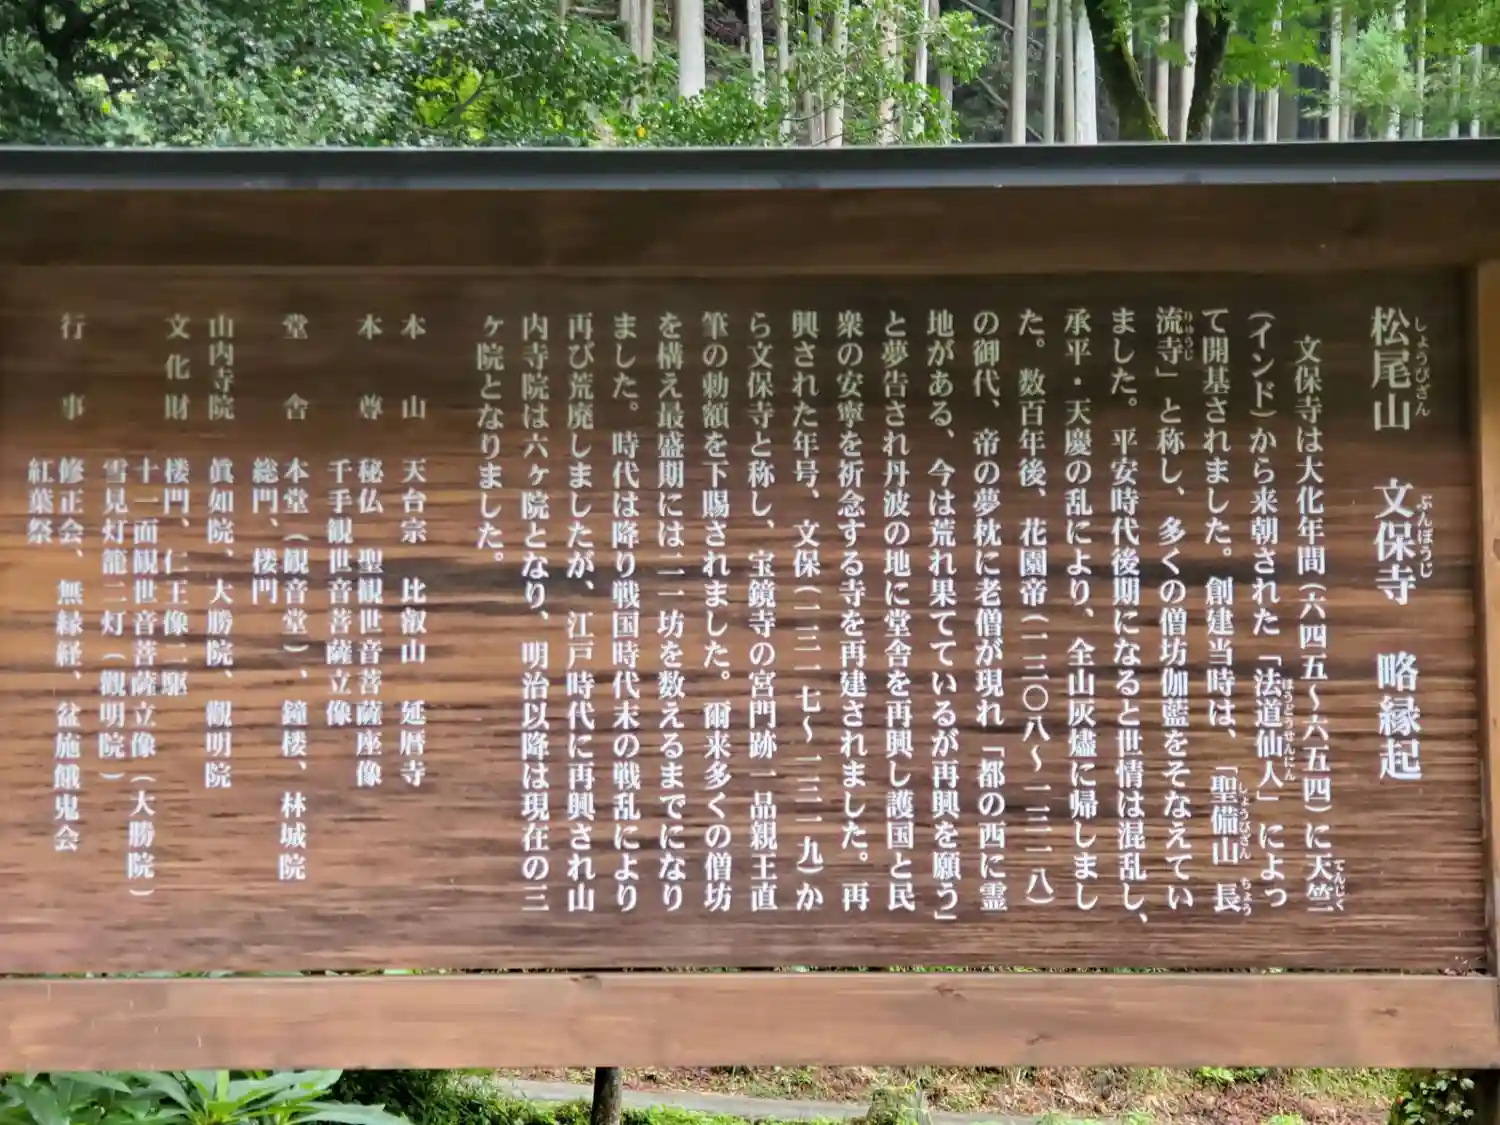 松尾山 文保寺 略縁起
しょうびざん ぶんぽうじ
文保寺は大化年間(六四五〜六五四)に天竺
てんじく
(インド)から来朝された「法道仙人」によっ
ほうどうせんにん
て開基されました。創建当時は、「聖備山 長
しょうびざん ちょう
流寺」と称し、多くの僧坊伽藍をそなえてい
りゅうじ
ました。平安時代後期になると世情は混乱し、
承平・天慶の乱により、全山灰燼に帰しまし
た。数百年後、花園帝(一三〇八〜一三一八)
の御代、帝の夢枕に老僧が現れ「都の西に霊
地がある、今は荒れ果てているが再興を願う」
と夢告され丹波の地に堂舎を再興し護国と民
衆の安寧を祈念する寺を再建されました。再
興された年号、文保(一三一七〜一三一九)か
ら文保寺と称し、宝鏡寺の宮門跡一品親王直
筆の勅額を下賜されました。爾来多くの僧坊
を構え最盛期には二一坊を数えるまでになり
ました。時代は降り戦国時代末の戦乱により
再び荒廃しましたが、江戸時代に再興され山
内寺院は六ヶ院となり、明治以降は現在の三
ヶ院となりました。
本山 天台宗 比叡山 延暦寺
本尊 秘仏 聖観世音菩薩座像
千手観世音菩薩立像
堂舎 本堂(観音堂)、鐘楼、林城院
総門、楼門
山内寺院 眞如院、大勝院、觀明院
文化財 楼門、仁王像二躯
十一面観世音菩薩立像(大勝院)
雪見灯籠二灯(觀明院)
行事 修正会、無縁経、盆施餓鬼会
紅葉祭